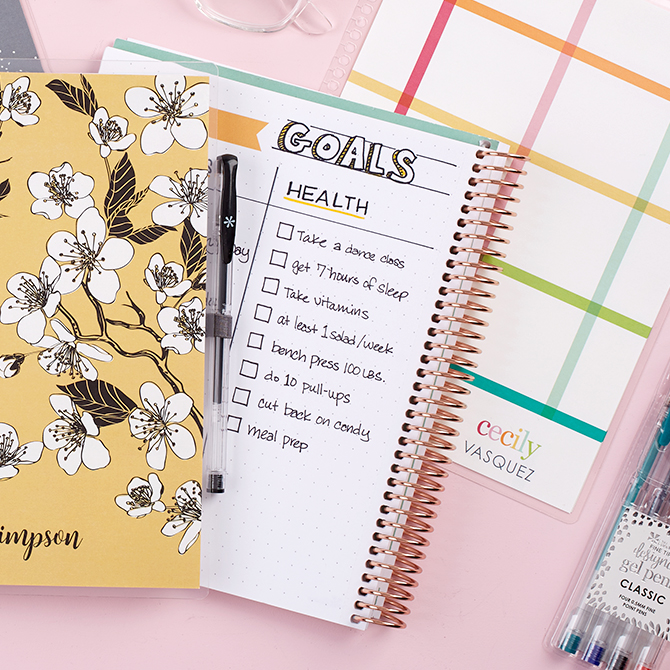 GOALS
HEALTH
Take a dance class
get 7 hours of sleep
Take vitamins
at least 1 salad/week
bench press 100 LBS.
do 10 pull-ups
cut back on candy
meal prep
cecily
VASQUEZ
FINE TIP
designer
gel pens
CLASSIC
FOUR 0.5MM FINE
POINT PENS